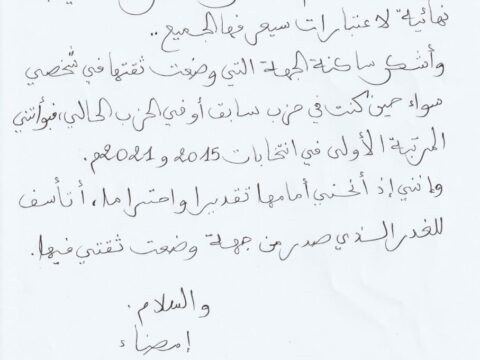 نهائية لاعتبارات سيعرفها الجميع ..
وأشكر ساكنة الجهة التي وضعت ثقتها في شخصي
سواء حين كنت في حزب سابق أو في الحزب الحالي، فبوأتني
المرتبة الأولى في انتخابات 2015 و 2021م.
وإنني إذ أنحني أمامها تقديرا واحتراما، أتأسف
للغدر الذي صدر من جهة وضعت ثقتي فيها.
والسلام.
إمضاء